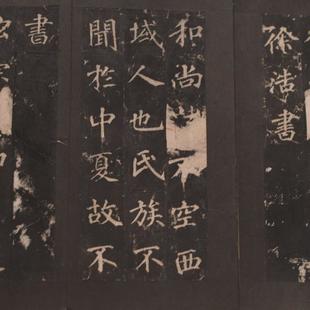 徐浩書
和尚 不空西
域人也氏族不
聞扵中夏故不
書